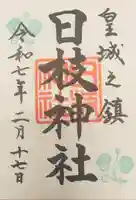 皇城之鎮
日枝神社
令和七年二月十七日